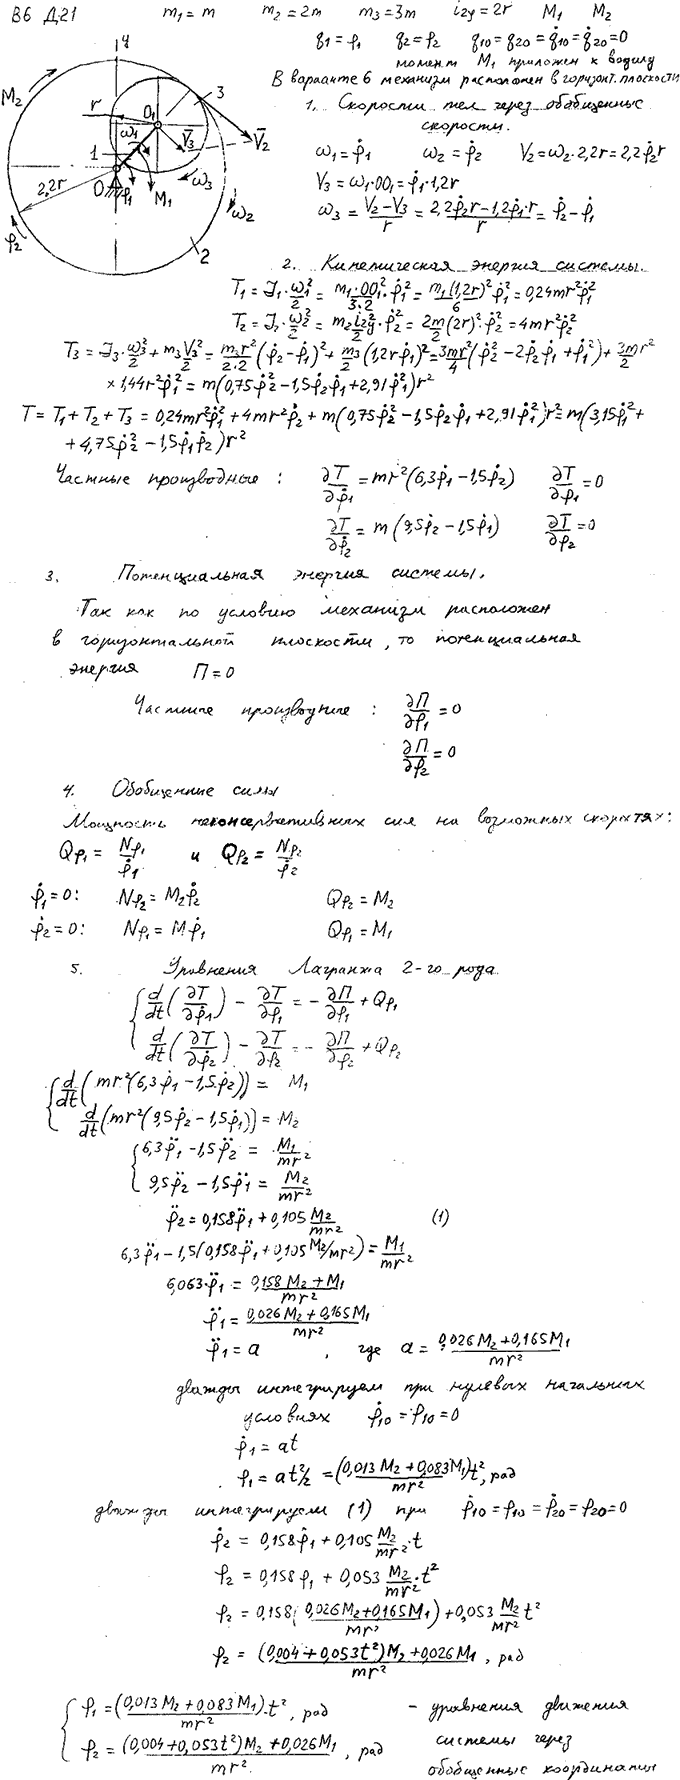 В6 Д21 m₁ = m m₂ = 2m m₃ = 3m i₂y = 2r M₁ M₂
q₁ = φ₁ q₂ = φ₂ q₁₀ = q₂₀ = q̇₁₀ = q̇₂₀ = 0
момент M₁ приложен к водилу
В варианте 6 механизм расположен в горизонт. плоскости
y
M₂
r
O₁
3
ω₁
V̄₃
V̄₂
1
O
φ₁
M₁
ω₃
ω₂
2,2r
φ₂
2
1. Скорости тел через обобщенные
скорости.
ω₁ = φ̇₁ ω₂ = φ̇₂ V₂ = ω₂·2,2r = 2,2φ̇₂r
V₃ = ω₁·OO₁ = φ̇₁·1,2r
ω₃ = (V₂ − V₃)/r = (2,2φ̇₂r − 1,2φ̇₁·r)/r = φ̇₂ − φ̇₁
2. Кинетическая энергия системы.
T₁ = J₁·ω₁²/2 = m₁·OO₁²/(3·2)·φ̇₁² = m₁(1,2r)²/6 φ̇₁² = 0,24mr²φ̇₁²
T₂ = J₂·ω₂²/2 = m₂i₂y²/2·φ̇₂² = 2m/2(2r)²·φ̇₂² = 4mr²φ̇₂²
T₃ = J₃·ω₃²/2 + m₃V₃²/2 = m₃r²/(2·2)(φ̇₂ − φ̇₁)² + m₃/2(1,2rφ̇₁)² = 3mr²/4(φ̇₂² − 2φ̇₂φ̇₁ + φ̇₁²) + 3mr²/2
× 1,44r²φ̇₁² = m(0,75φ̇₂² − 1,5φ̇₂φ̇₁ + 2,91φ̇₁²)r²
T = T₁ + T₂ + T₃ = 0,24mr²φ̇₁² + 4mr²φ̇₂ + m(0,75φ̇₂² − 1,5φ̇₂φ̇₁ + 2,91φ̇₁²)r² = m(3,15φ̇₁² +
+ 4,75φ̇₂² − 1,5φ̇₁φ̇₂)r²
Частные производные : ∂T/∂φ̇₁ = mr²(6,3φ̇₁ − 1,5φ̇₂) ∂T/∂φ₁ = 0
∂T/∂φ̇₂ = m(9,5φ̇₂ − 1,5φ̇₁) ∂T/∂φ₂ = 0
3. Потенциальная энергия системы.
Так как по условию механизм расположен
в горизонтальной плоскости, то потенциальная
энергия П = 0
Частные производные : ∂П/∂φ₁ = 0
∂П/∂φ₂ = 0
4. Обобщенные силы
Мощность неконсервативных сил на возможных скоростях:
Qφ₁ = Nφ₁/φ̇₁ и Qφ₂ = Nφ₂/φ̇₂
φ̇₁ = 0: Nφ₂ = M₂φ̇₂ Qφ₂ = M₂
φ̇₂ = 0: Nφ₁ = Mφ̇₁ Qφ₁ = M₁
5. Уровнения Лагранжа 2-го рода.
d/dt(∂T/∂φ̇₁) − ∂T/∂φ₁ = −∂П/∂φ₁ + Qφ₁
d/dt(∂T/∂φ̇₂) − ∂T/∂φ₂ = −∂П/∂φ₂ + Qφ₂
d/dt(mr²(6,3φ̇₁ − 1,5φ̇₂)) = M₁
d/dt(mr²(9,5φ̇₂ − 1,5φ̇₁)) = M₂
6,3φ̈₁ − 1,5φ̈₂ = M₁/mr²
9,5φ̈₂ − 1,5φ̈₁ = M₂/mr²
φ̈₂ = 0,158φ̈₁ + 0,105 M₂/mr² (1)
6,3φ̈₁ − 1,5(0,158φ̈₁ + 0,105 M₂/mr²) = M₁/mr²
6,063·φ̈₁ = (0,158M₂ + M₁)/mr²
φ̈₁ = (0,026M₂ + 0,165M₁)/mr²
φ̈₁ = a , где a = (0,026M₂ + 0,165M₁)/mr²
дважды интегрируем при нулевых начальных
условиях φ̇₁₀ = φ₁₀ = 0
φ̇₁ = at
φ₁ = at²/2 = (0,013M₂ + 0,083M₁)t²/mr², рад
дважды интегрируем (1) при φ̇₁₀ = φ₁₀ = φ̇₂₀ = φ₂₀ = 0
φ̇₂ = 0,158φ̇₁ + 0,105 M₂/mr²·t
φ₂ = 0,158φ₁ + 0,053 M₂/mr²·t²
φ₂ = 0,158(0,026M₂ + 0,165M₁)/mr² + 0,053 M₂/mr² t²
φ₂ = ((0,004 + 0,053t²)M₂ + 0,026M₁)/mr², рад
φ₁ = (0,013M₂ + 0,083M₁)/mr²·t², рад – уравнения движения
φ₂ = ((0,004 + 0,053t²)M₂ + 0,026M₁)/mr², рад системы через
обобщенные координаты